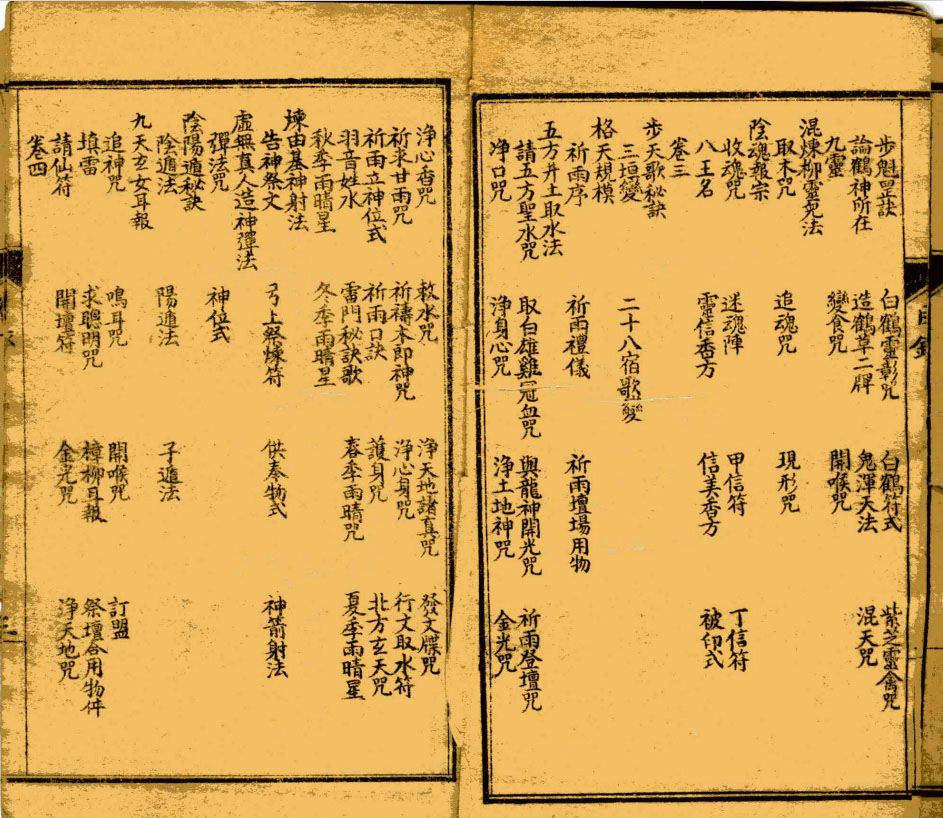 目錄
步魁罡訣　白鶴靈彰咒　白鶴符式　紫芝靈禽咒
論鶴神所在　造鶴草二牌　鬼渾天法　混天咒
九靈　變食咒　開喉咒
混煉柳靈兒法
取木咒　追魂咒　現形咒
陰魂報宗
收魂咒　迷魂陣　甲信符　丁信符
八王名　靈信香方　信美香方　被印式
卷三
步天歌秘訣
三垣變　二十八宿歌變
格天規模
祈雨序　祈雨禮儀　祈雨壇場用物
五方井土取水法
請五方聖水咒　取白雄雞冠血咒　與龍神開光咒　祈雨登壇咒
净口咒　淨身心咒　淨土地神咒　金光咒
淨心香咒　敕水咒　淨天地諸真咒　發文牒咒
祈求甘雨咒　祈禱木郎神咒　淨心身咒　行文取水符
祈雨立神位式　祈雨日訣　護身咒　北方玄天咒
羽音姓水　雷門秘訣歌　春季雨晴咒　夏季雨晴星
秋季雨晴星　冬季雨晴星
煉由基神射法
告神祭文　弓上祭煉符　供奉物式　神箭射法
虛無真人造神彈法
彈法咒　神位式
陰陽遁秘訣
陰遁法　陽遁法　子遁法
九天玄女耳報
追神咒　鳴耳咒　開喉咒　訂盟
填雷　求聰明咒　樟柳耳報　祭壇合用物件
請仙符　開壇符　金光咒　淨天地咒
卷四